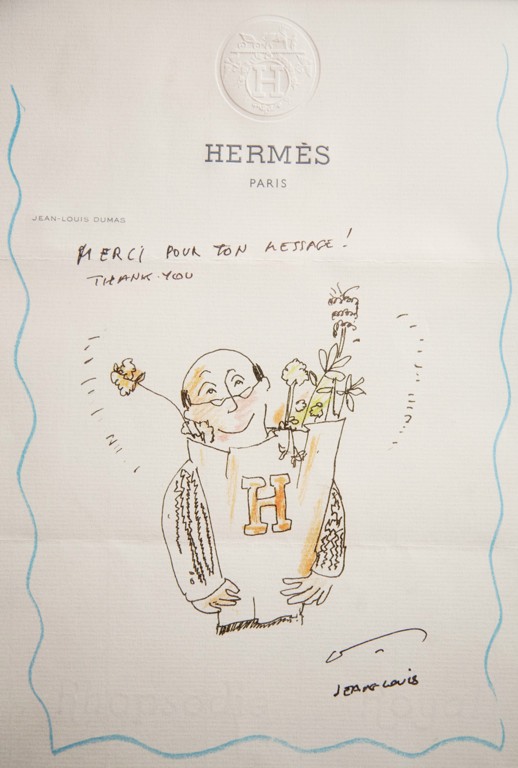 H
HERMÈS
PARIS
JEAN-LOUIS DUMAS
MERCI POUR TON MESSAGE!
THANK-YOU
H
JEAN-LOUIS